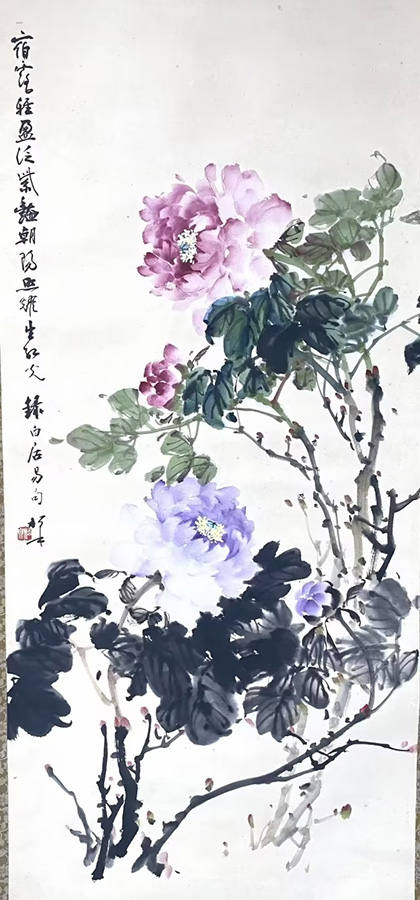 宿露輕盈泛紫豔朝陽照耀生紅光 録白居易句